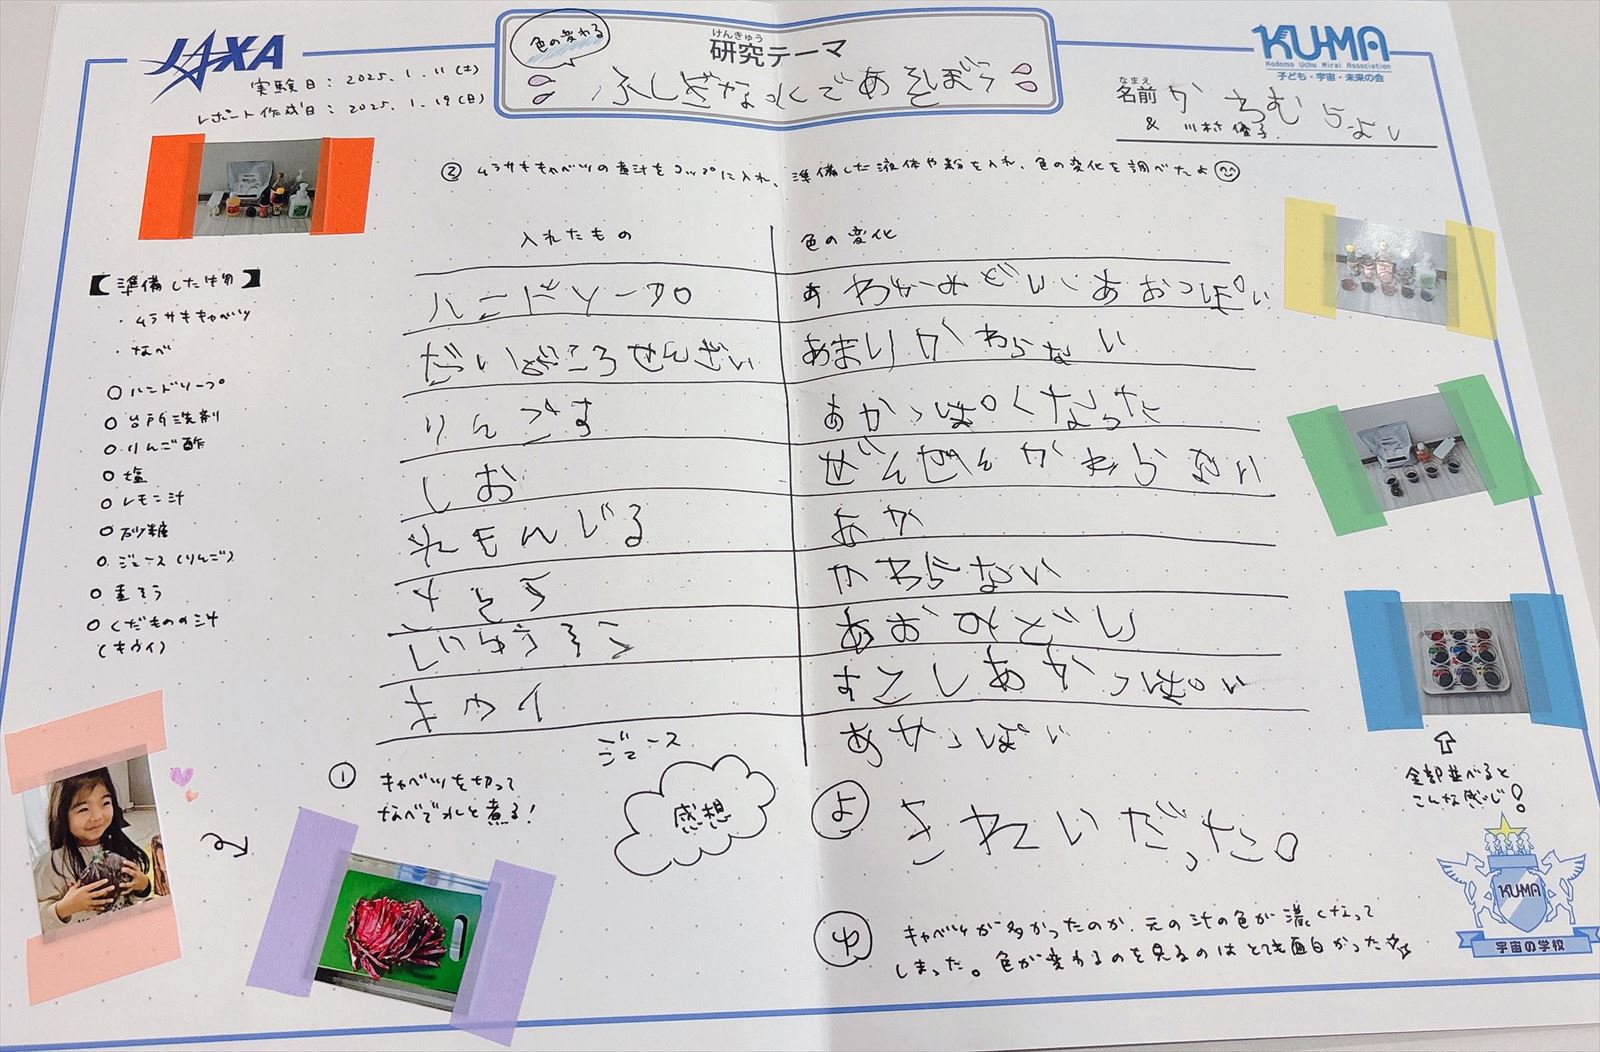 JAXA
実験日：2025.1.11(土)
レポート作成日：2025.1.19(日)
色の変わる
けんきゅう
研究テーマ
ふしぎな水であそぼう
KU-MA
Kodomo Uchu Mirai Association
子ども・宇宙・未来の会
なまえ
名前
②ムラサキキャベツの煮汁をコップに入れ、準備した液体や粉を入れ、色の変化を調べたよ
【準備した物】
・ムラサキキャベツ
・なべ
○ハンドソープ
○台所洗剤
○りんご酢
○塩
○レモン汁
○砂糖
○ジュース(りんご)
○重そう
○くだものの汁
(キウイ)
入れたもの
色の変化
ハンドソープ
あわがみどりいあおっぽい
だいどころせんざい
あまりかわらない
りんごす
あかっぽくなった
しお
ぜんぜんかわらない
れもんじる
あか
さとう
かわらない
じゅうそう
あおみどり
キウイ
すこしあかっぽい
ジュース
あかっぽい
①キャベツを切って
なべで水と煮る！
感想
よ きれいだった。
ゆ キャベツが多かったのか、元の汁の色が濃くなって
しまった。色が変わるのを見るのはとても面白かった☆
全部並べると
こんな感じ！
KU-MA
宇宙の学校